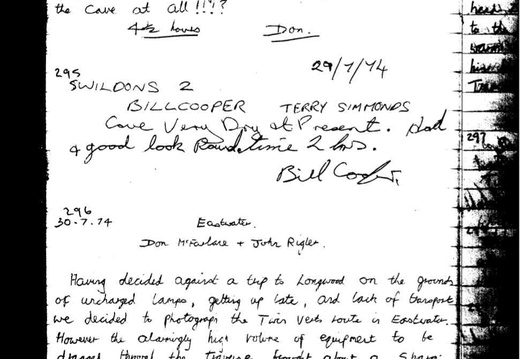 the Cave at all!!!?
4½ hours Don.
295 29/7/74
SWILDONS 2
BILL COOPER TERRY SIMMONDS
Cave Very Dry at Present. Had
a good look Round. time 2 hrs.
Bill Cooper.
296
30.7.74 Eastwater.
Don McFarlane + John Rigler.
Having decided against a trip to Longwood on the grounds
of uncharged lamps, getting up late, and lack of transport
we decided to photograph the Twin Verts route in Eastwater.
However the alarmingly high volume of equipment to be
dragged through the Traverse brought about a
head
to the
297